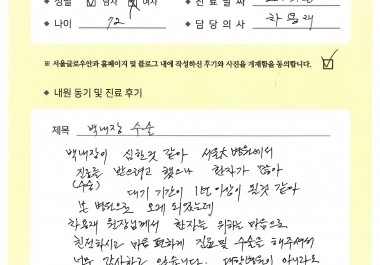 • 성별 ☑ 남자 ☑ 여자 • 진료날짜
• 나이 72 • 담당의사 차흥재
※ 서울글로우안과 홈페이지 및 블로그 내에 작성하신 후기와 사진을 게재함을 동의합니다. ☑
• 내원 동기 및 진료 후기
제목 백내장 수술
백내장이 심한것 같아 서울大병원에서
진료를 받으려고 했으나 환자가 많아
(수술) 대기 기간이 1년 이상이 될것 같아
본 병원으로 오게 되었는데
원장님께서 환자를 위하는 마음으로
친절하시고 마음 편하게 진료 및 수술을 해주셔서
너무 감사하고 있습니다. 대학병원이 아니라도